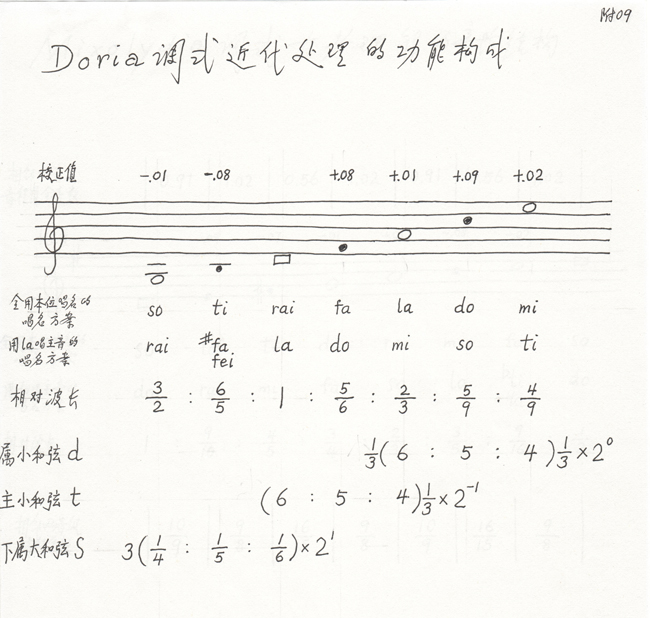 附09
Doria调式近代处理的功能构成
校正值 -.01 -.08 +.08 +.01 +.09 +.02
全用本位唱名的
唱名方案 so ti rai fa la do mi
用la唱主音的
唱名方案 rai #fa fei la do mi so ti
相对波长 3/2 : 6/5 : 1 : 5/6 : 2/3 : 5/9 : 4/9
属小和弦d 1/3(6 : 5 : 4)1/3×2⁰
主小和弦t (6 : 5 : 4)1/3×2⁻¹
下属大和弦S 3(1/4 : 1/5 : 1/6)×2¹